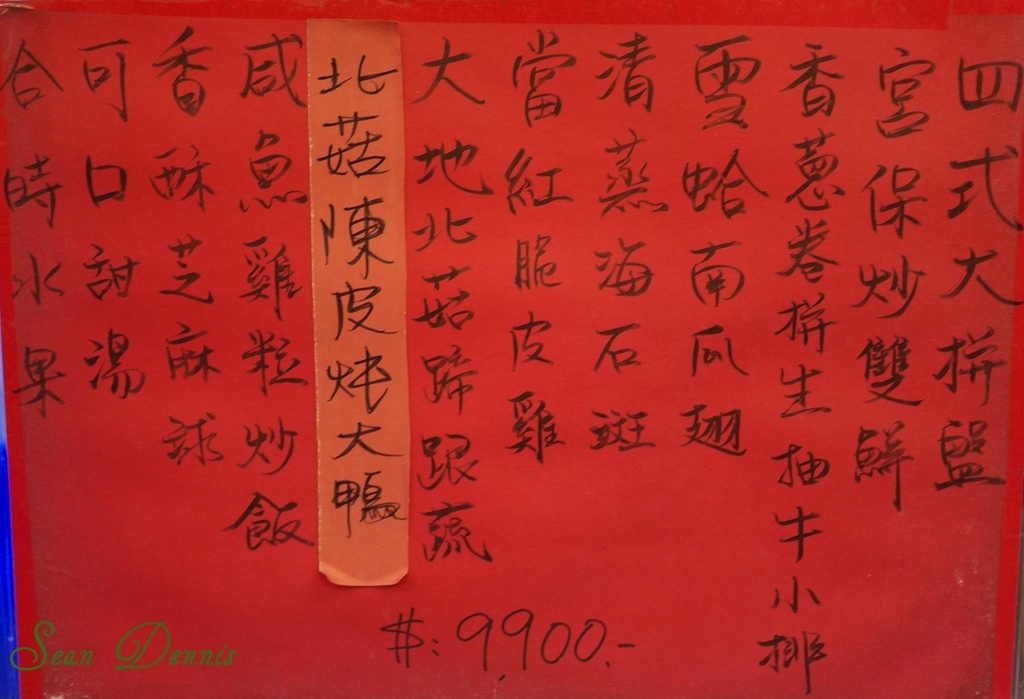 四式大拼盤
宮保炒雙鮮
香蔥卷拼生抽牛小排
雪蛤南瓜翅
清蒸海石斑
當紅脆皮雞
大地北菇蹄跟蔬
北菇陳皮炖大鴨
咸魚雞粒炒飯
香酥芝麻球
可口甜湯
合時水果
$: 9,900.-
Sean Dennis